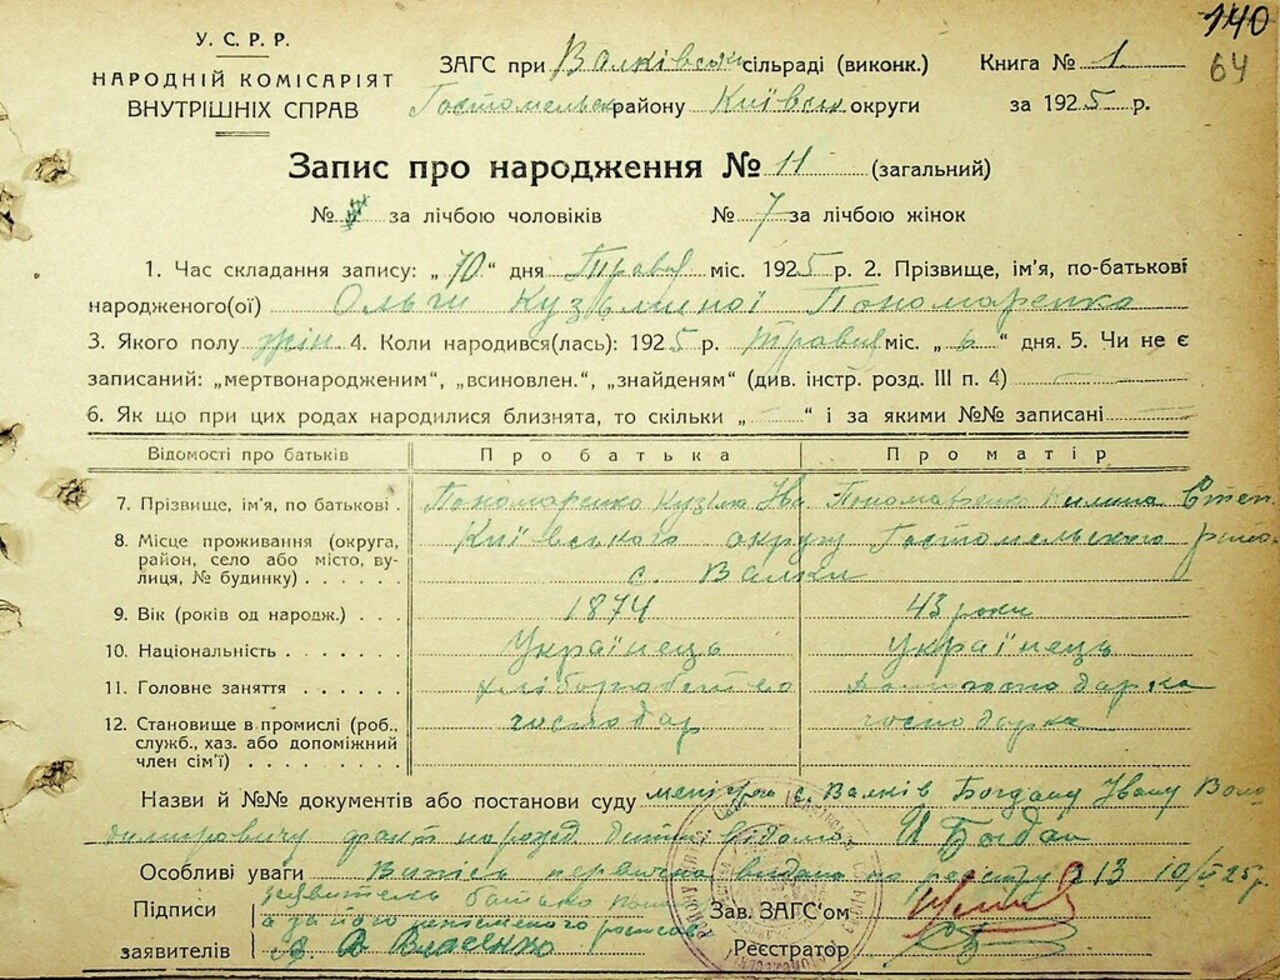 140
64
У. С. Р. Р.
НАРОДНІЙ КОМІСАРІЯТ
ВНУТРІШНІХ СПРАВ
ЗАГС при Валківськ сільраді (виконк.) Книга № 1
Гостомельськ району Київськ округи за 1925 р.
Запис про народження № 11 (загальний)
№ за лічбою чоловіків № 7 за лічбою жінок
1. Час складання запису: „10“ дня Травня міс. 1925 р. 2. Прізвище, ім'я, по-батькові
народженого(ої) Ольги Кузьминої Пономаренко
3. Якого полу жін. 4. Коли народився(лась): 1925 р. Травня міс. „6“ дня. 5. Чи не є
записаний: „мертвонародженим“, „всиновлен.“, „знайденям“ (див. інстр. розд. III п. 4)
6. Як що при цих родах народилися близнята, то скільки „ “ і за якими №№ записані
Відомості про батьків Про батька Про матір
7. Прізвище, ім'я, по батькові . Пономаренко Кузьма Іва Пономаренко Килина Степ
8. Місце проживання (округа, Київського округу Гостомельского району
район, село або місто, ву-
лиця, № будинку) . . . . . . с. Валки
9. Вік (років од народж.) . . . 1874 43 роки
10. Національність . . . . . . . Українець Українець
11. Головне заняття . . . . . . хліборобство домогосподарка
12. Становище в промислі (роб., господар господарка
служб., хаз. або допоміжний
член сім'ї) . . . . . . . . .
Назви й №№ документів або постанови суду с. Валків Богдану Івану Воло
димировичу факт народж. дитини відомо И Богдан
Особливі уваги Випись первична видана по реєстру 13 10/V 25р.
Підписи заявитель батько
а за його росписався
заявителів А Власенко
Зав. ЗАГС'ом
Реєстратор